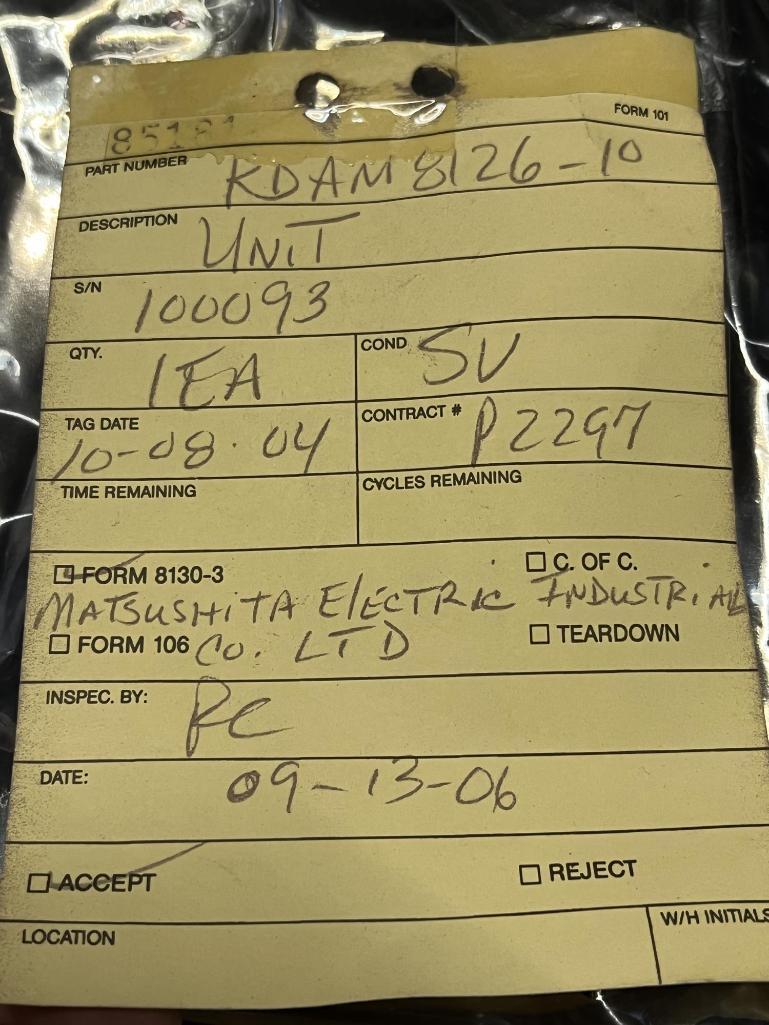 FORM 101
85181
PART NUMBER KDAM8126-10
DESCRIPTION UNIT
S/N 100093
QTY. 1EA COND SV
TAG DATE 10-08-04 CONTRACT # P2297
TIME REMAINING CYCLES REMAINING
FORM 8130-3 C. OF C.
MATSUSHITA ElECTRIC INDUSTRIAL
FORM 106 CO. LTD TEARDOWN
INSPEC. BY: RC
DATE: 09-13-06
ACCEPT REJECT
LOCATION W/H INITIALS